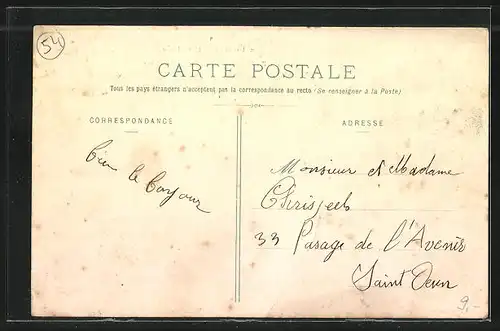 54
CARTE POSTALE
Tous les pays étrangers n'acceptent pas la correspondance au recto (Se renseigner à la Poste)
CORRESPONDANCE
ADRESSE
Bien le Bonjour
Monsieur et Madame
33 Passage de l'Avenir
Saint Ouen
9.-